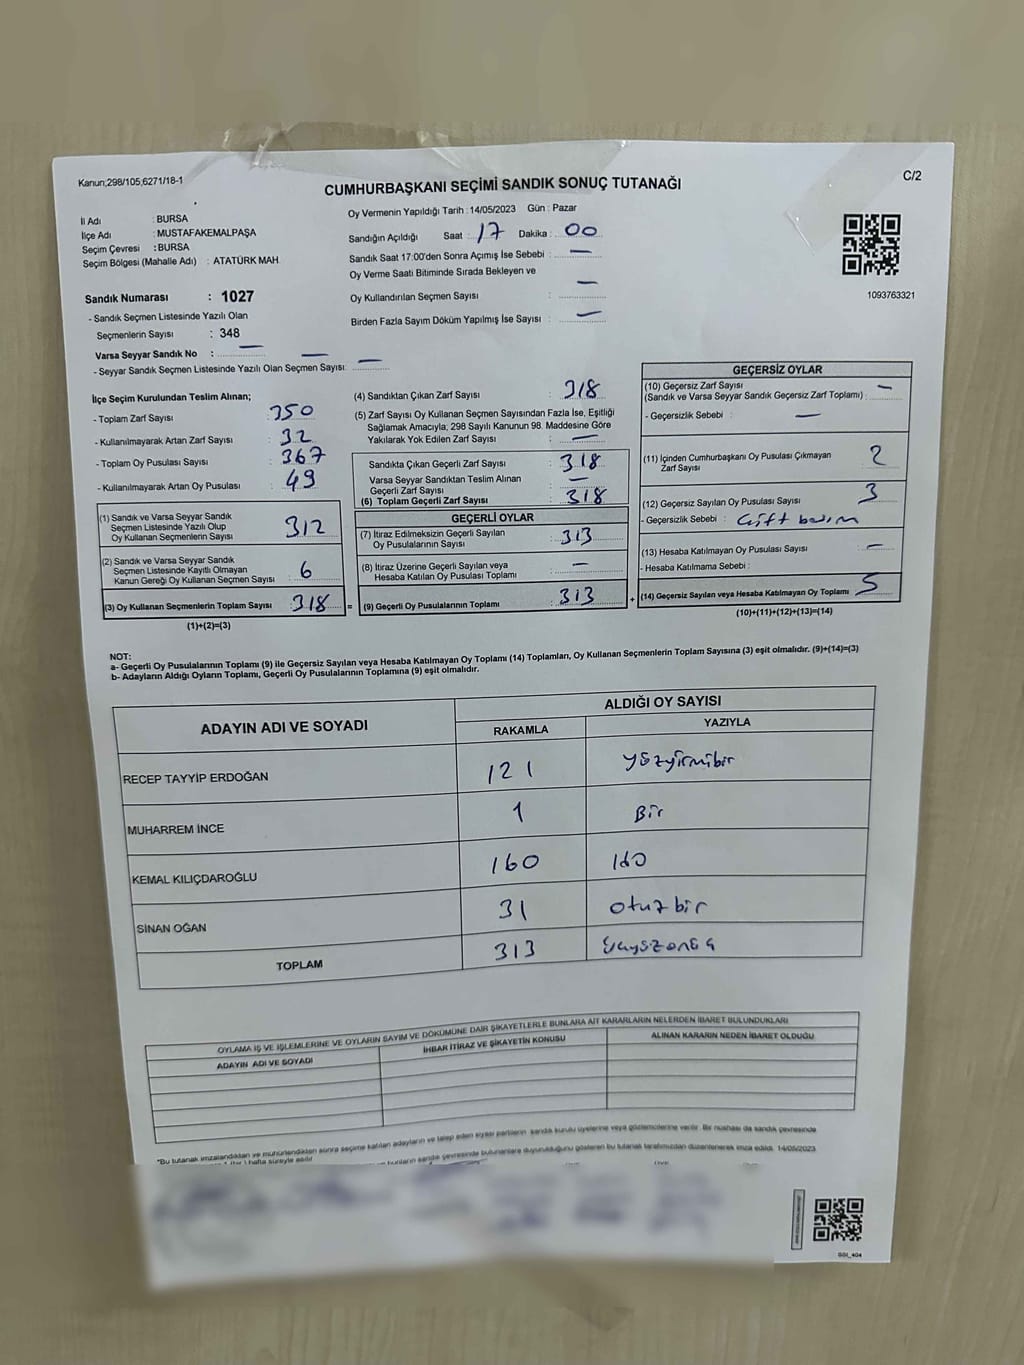 Kanun;298/105,6271/18-1
C/2
CUMHURBAŞKANI SEÇİMİ SANDIK SONUÇ TUTANAĞI
İl Adı : BURSA
İlçe Adı : MUSTAFAKEMALPAŞA
Seçim Çevresi : BURSA
Seçim Bölgesi (Mahalle Adı) : ATATÜRK MAH.
Sandık Numarası : 1027
- Sandık Seçmen Listesinde Yazılı Olan
Seçmenlerin Sayısı : 348
Varsa Seyyar Sandık No : —
- Seyyar Sandık Seçmen Listesinde Yazılı Olan Seçmen Sayısı: —
Oy Vermenin Yapıldığı Tarih : 14/05/2023 Gün : Pazar
Sandığın Açıldığı Saat : 17 Dakika : 00
Sandık Saat 17:00'den Sonra Açımış İse Sebebi : —
Oy Verme Saati Bitiminde Sırada Bekleyen ve
Oy Kullandırılan Seçmen Sayısı : —
Birden Fazla Sayım Döküm Yapılmış İse Sayısı : —
1093763321
İlçe Seçim Kurulundan Teslim Alınan;
- Toplam Zarf Sayısı : 350
- Kullanılmayarak Artan Zarf Sayısı : 32
- Toplam Oy Pusulası Sayısı : 367
- Kullanılmayarak Artan Oy Pusulası : 49
(1) Sandık ve Varsa Seyyar Sandık
Seçmen Listesinde Yazılı Olup
Oy Kullanan Seçmenlerin Sayısı : 312
(2) Sandık ve Varsa Seyyar Sandık
Seçmen Listesinde Kayıtlı Olmayan
Kanun Gereği Oy Kullanan Seçmen Sayısı : 6
(3) Oy Kullanan Seçmenlerin Toplam Sayısı : 318 =
(1)+(2)=(3)
(4) Sandıktan Çıkan Zarf Sayısı : 318
(5) Zarf Sayısı Oy Kullanan Seçmen Sayısından Fazla İse, Eşitliği
Sağlamak Amacıyla, 298 Sayılı Kanunun 98. Maddesine Göre
Yakılarak Yok Edilen Zarf Sayısı : —
Sandıkta Çıkan Geçerli Zarf Sayısı : 318
Varsa Seyyar Sandıktan Teslim Alınan
Geçerli Zarf Sayısı : —
(6) Toplam Geçerli Zarf Sayısı : 318
GEÇERLİ OYLAR
(7) İtiraz Edilmeksizin Geçerli Sayılan
Oy Pusulalarının Sayısı : 313
(8) İtiraz Üzerine Geçerli Sayılan veya
Hesaba Katılan Oy Pusulası Toplamı : —
(9) Geçerli Oy Pusulalarının Toplamı : 313 +
GEÇERSİZ OYLAR
(10) Geçersiz Zarf Sayısı
(Sandık ve Varsa Seyyar Sandık Geçersiz Zarf Toplamı) : —
- Geçersizlik Sebebi : —
(11) İçinden Cumhurbaşkanı Oy Pusulası Çıkmayan
Zarf Sayısı : 2
(12) Geçersiz Sayılan Oy Pusulası Sayısı : 3
- Geçersizlik Sebebi : Çift basım
(13) Hesaba Katılmayan Oy Pusulası Sayısı : —
- Hesaba Katılmama Sebebi :
(14) Geçersiz Sayılan veya Hesaba Katılmayan Oy Toplamı : 5
(10)+(11)+(12)+(13)=(14)
NOT:
a- Geçerli Oy Pusulalarının Toplamı (9) ile Geçersiz Sayılan veya Hesaba Katılmayan Oy Toplamı (14) Toplamları, Oy Kullanan Seçmenlerin Toplam Sayısına (3) eşit olmalıdır. (9)+(14)=(3)
b- Adayların Aldığı Oyların Toplamı, Geçerli Oy Pusulalarının Toplamına (9) eşit olmalıdır.
ADAYIN ADI VE SOYADI
ALDIĞI OY SAYISI
RAKAMLA YAZIYLA
RECEP TAYYİP ERDOĞAN 121 yüzyirmibir
MUHARREM İNCE 1 Bir
KEMAL KILIÇDAROĞLU 160 160
SİNAN OĞAN 31 otuzbir
TOPLAM 313
OYLAMA İŞ VE İŞLEMLERİNE VE OYLARIN SAYIM VE DÖKÜMÜNE DAİR ŞİKAYETLERLE BUNLARA AİT KARARLARIN NELERDEN İBARET BULUNDUKLARI
ADAYIN ADI VE SOYADI İHBAR İTİRAZ VE ŞİKAYETİN KONUSU ALINAN KARARIN NEDEN İBARET OLDUĞU
"Bu tutanak imzalandıktan ve mühürlendikten sonra seçime katılan adayların ve talep eden siyasi partilerin sandık kurulu üyelerine veya gözlemcilerine verilir. Bir nüshası da sandık çevresinde